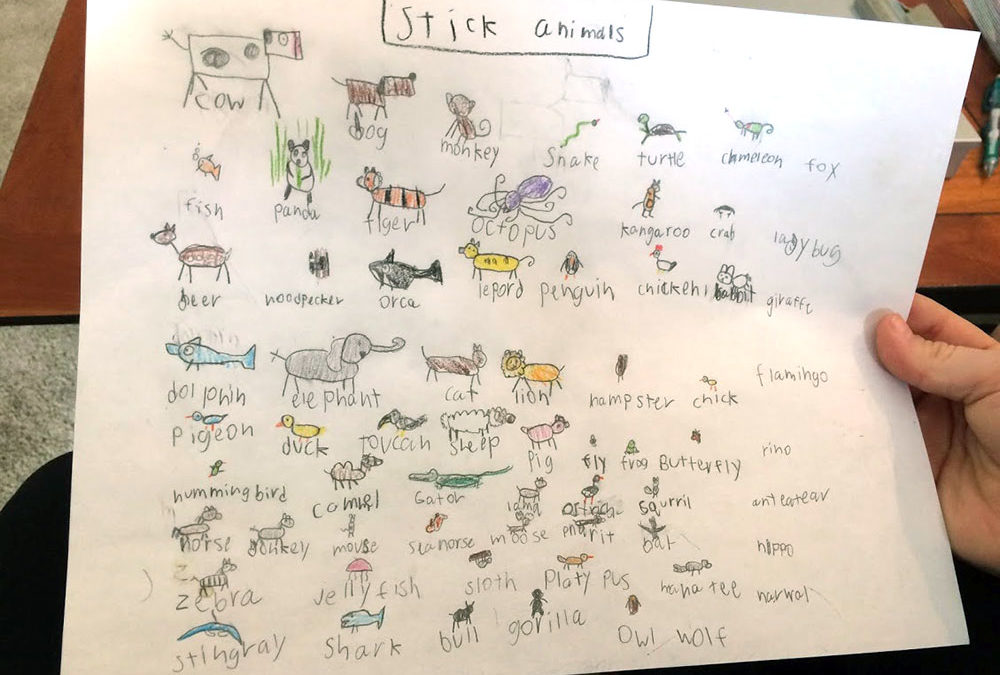 Stick animals
cow
dog
monkey
Snake
turtle
chmeleon
fox
fish
panda
tiger
octopus
kangaroo
crab
ladybug
Deer
woodpecker
orca
lepord
penguin
chicken
rabbit
giraffe
dolphin
elephant
cat
lion
hampster
chick
flamingo
pigeon
duck
toucan
sheep
pig
fly
frog
Butterfly
rino
hummingbird
camel
Gator
lama
ostrich
squrril
anteatear
horse
donkey
mouse
seahorse
moose
parrit
bat
hippo
zebra
jelly fish
sloth
Platy pus
manatee
narwal
stingray
Shark
bull
gorilla
Owl
wolf